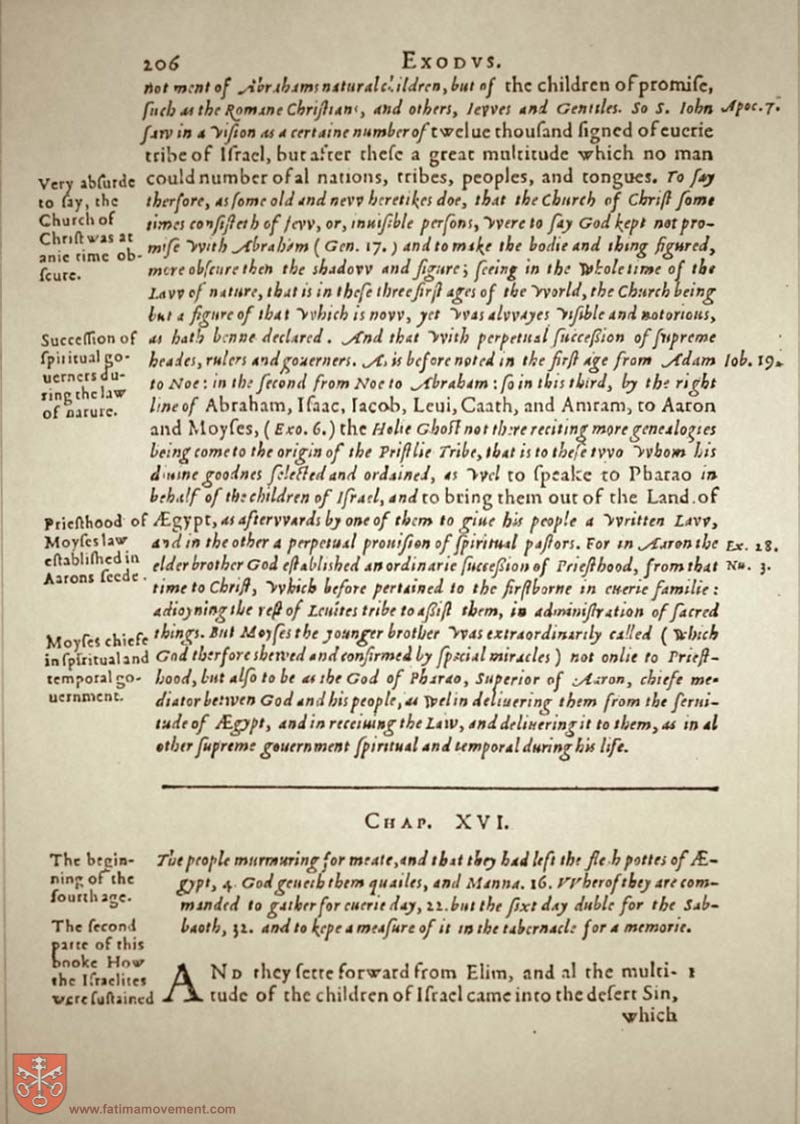 206
EXODVS.
not ment of Abrahams natural children, but of the children of promiſe,
ſuch as the Romane Chriſtians, and others, Ievves and Gentiles. So S. Iohn
Apoc. 7.
ſaw in a viſion as a certaine number of twelue thouſand ſigned of euerie
tribe of Iſrael, but after theſe a great multitude which no man
could number of al nations, tribes, peoples, and tongues. To ſay
Very abſurde
to ſay, the
Church of
Chriſt was at
anie time ob-
ſcure.
therfore, as ſome old and nevv heretikes doe, that the Church of Chriſt ſome
times conſiſteth of fevv, or, inuiſible perſons, vvere to ſay God kept not pro-
miſe vvith Abraham (Gen. 17.) and to make the bodie and thing figured,
more obſcure then the shadovv and figure; ſeeing in the whole time of the
Lavv of nature, that is in theſe three firſt ages of the vvorld, the Church being
but a figure of that vvhich is novv, yet vvas alvvayes viſible and notorious,
as hath benne declared. And that vvith perpetual ſucceßion of ſupreme
Succeſſion of
ſpiritual go-
uerners du-
ring the law
of nature.
heades, rulers and gouerners. As is before noted in the firſt age from Adam
Iob. 19.
to Noe: in the ſecond from Noe to Abraham: ſo in this third, by the right
line of Abraham, Iſaac, Iacob, Leui, Caath, and Amram, to Aaron
and Moyſes, (Exo. 6.) the Holie Ghoſt not there reciting more genealogies
being come to the origin of the Prieſtlie Tribe, that is to theſe tvvo vvhom his
diuine goodnes ſelected and ordained, as vvel to ſpeake to Pharao in
behalf of the children of Iſrael, and to bring them out of the Land of
Prieſthood of
Moyſes law
eſtabliſhed in
Aarons ſeede.
Ægypt, as aftervvards by one of them to giue his people a vvritten Lavv,
and in the other a perpetual prouiſion of ſpiritual paſtors. For in Aaron the
Ex. 28.
elder brother God eſtablished an ordinarie ſucceßion of Prieſthood, from that
Nu. 3.
time to Chriſt, vvhich before pertained to the firſtborne in euerie familie:
adioyning the reſt of Leuites tribe to aßiſt them, in adminiſtration of ſacred
things. But Moyſes the younger brother vvas extraordinarily called (which
Moyſes chiefe
in ſpiritual and
temporal go-
uernment.
God therfore shewed and confirmed by ſpecial miracles) not onlie to Prieſt-
hood, but alſo to be as the God of Pharao, Superior of Aaron, chiefe me-
diator betwen God and his people, as wel in deliuering them from the ſerui-
tude of Ægypt, and in receiuing the Law, and deliuering it to them, as in al
other ſupreme gouernment ſpiritual and temporal during his life.
CHAP. XVI.
The begin-
ning of the
fourth age.
The people murmuring for meate, and that they had left the flesh pottes of Æ-
gypt, 4. God geueth them quailes, and Manna. 16. VVherof they are com-
manded to gather for euerie day, 22. but the ſixt day duble for the Sab-
baoth, 32. and to kepe a meaſure of it in the tabernacle for a memorie.
The ſecond
parte of this
booke How
the Iſraelites
were ſuſtained
AND they ſette forward from Elim, and al the multi-
1
tude of the children of Iſrael came into the deſert Sin,
which
www.fatimamovement.com